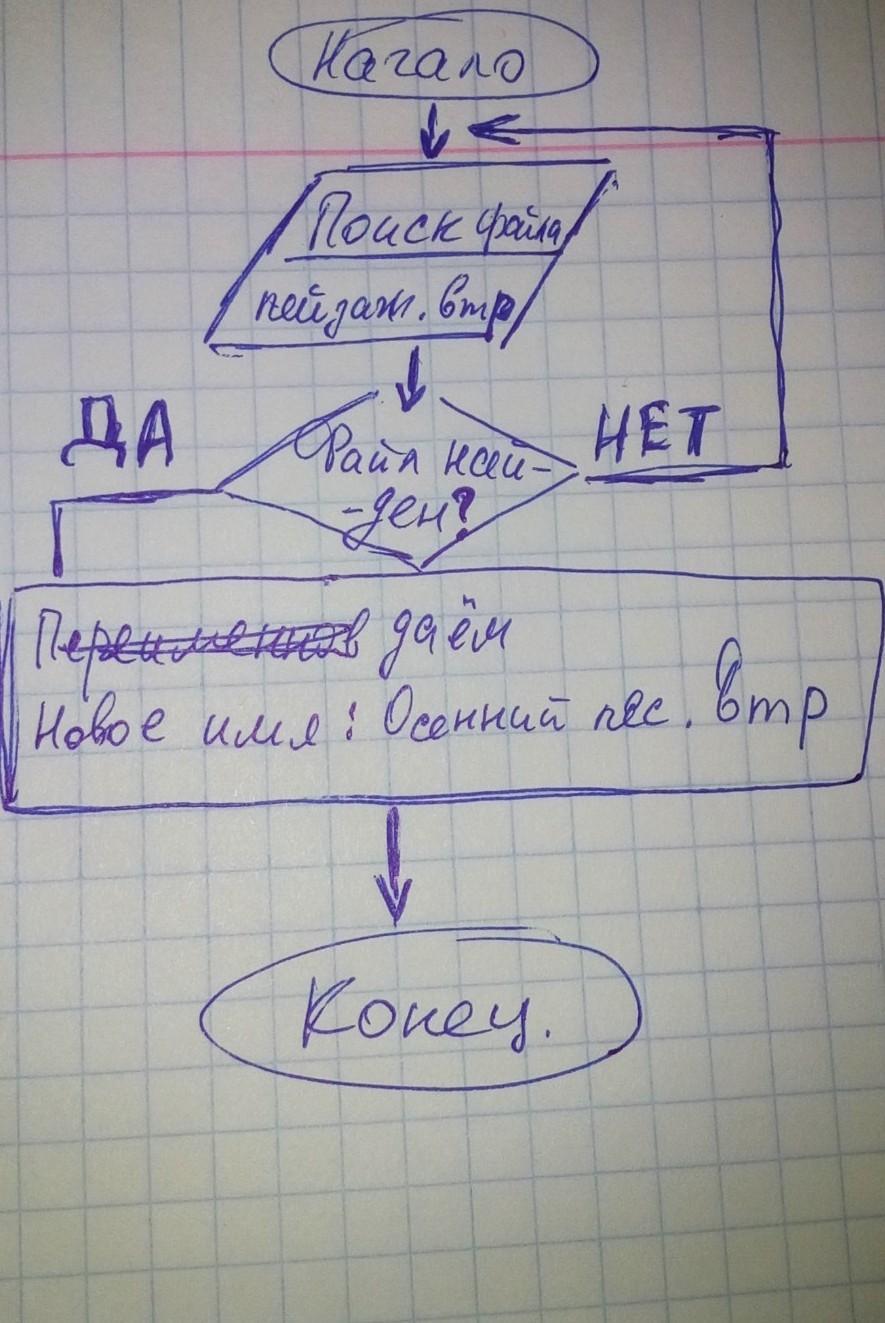 Начало
Поиск файла
пейзаж.втр
ДА
НЕТ
Файл най-
-ден?
Переименов даём
Новое имя: Осенний пес.втр
Конец.